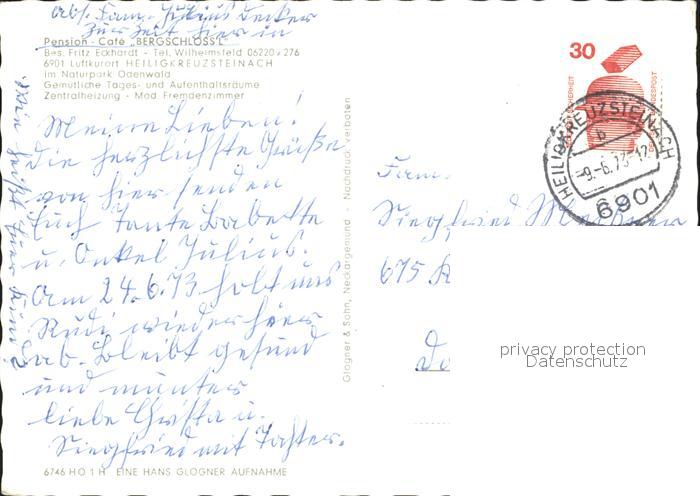 Abs. Fam. Julius Decker
zur Zeit hier in
Pension - Café „BERGSCHLÖSS'L"
Bes. Fritz Eckhardt - Tel. Wilhelmsfeld 06220 / 276
6901 Luftkurort HEILIGKREUZSTEINACH
im Naturpark Odenwald
Gemütliche Tages- und Aufenthaltsräume
Zentralheizung - Mod. Fremdenzimmer
Meine Lieben!
Die herzlichste Grüße
von hier senden
Euch Tante Babette
u. Onkel Julius.
Am 24.6.73 holt uns
Rudi wieder hier
ab. Bleibt gesund
und munter
liebe Christa u.
Siegfried mit Tochter.
Wie heißt Euer Kind?
6746 H O 1 H EINE HANS GLOGNER AUFNAHME
Glogner & Sohn, Neckargemünd - Nachdruck verboten
30
HEILIGKREUZSTEINACH
b
-9.-6.73-12
6901
Fam.
Siegfried
675 K
privacy protection
Datenschutz